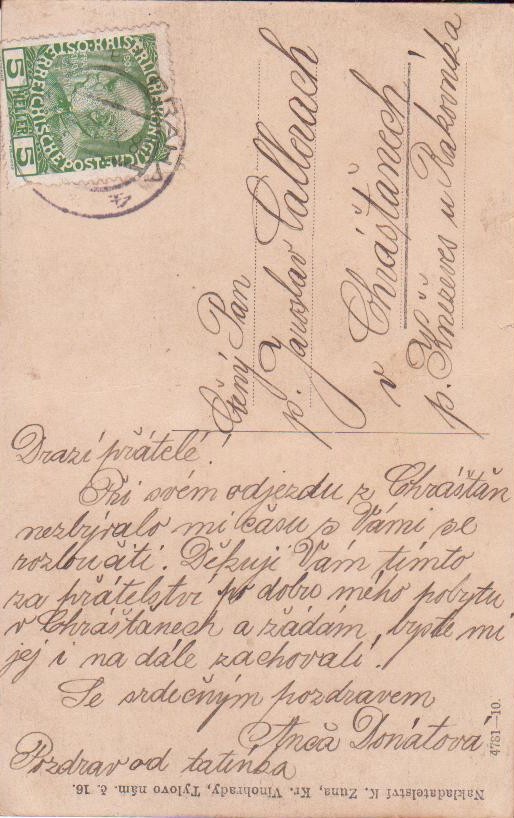 5 HELLER 5
KAISERLICHE KÖNIGLICHE ÖSTERREICHISCHE POST
PRAHA
Ctěný Pan
p. Jaroslav Callerach
v Chrášťanech
p. Kněževes u Rakovníka
Drazí přátelé!
Při svém odjezdu z Chrášťan
nezbývalo mi času s Vámi se
rozloučiti. Děkuji Vám tímto
za přátelství po dobo mého pobytu
v Chrášťanech a žádám, byste mi
jej i na dále zachovali!
Se srdečným pozdravem
Anča Donátová
Pozdrav od tatínka
4781—10.
Nakladatelství K. Zuna, Kr. Vinohrady, Tylovo nám. č. 16.